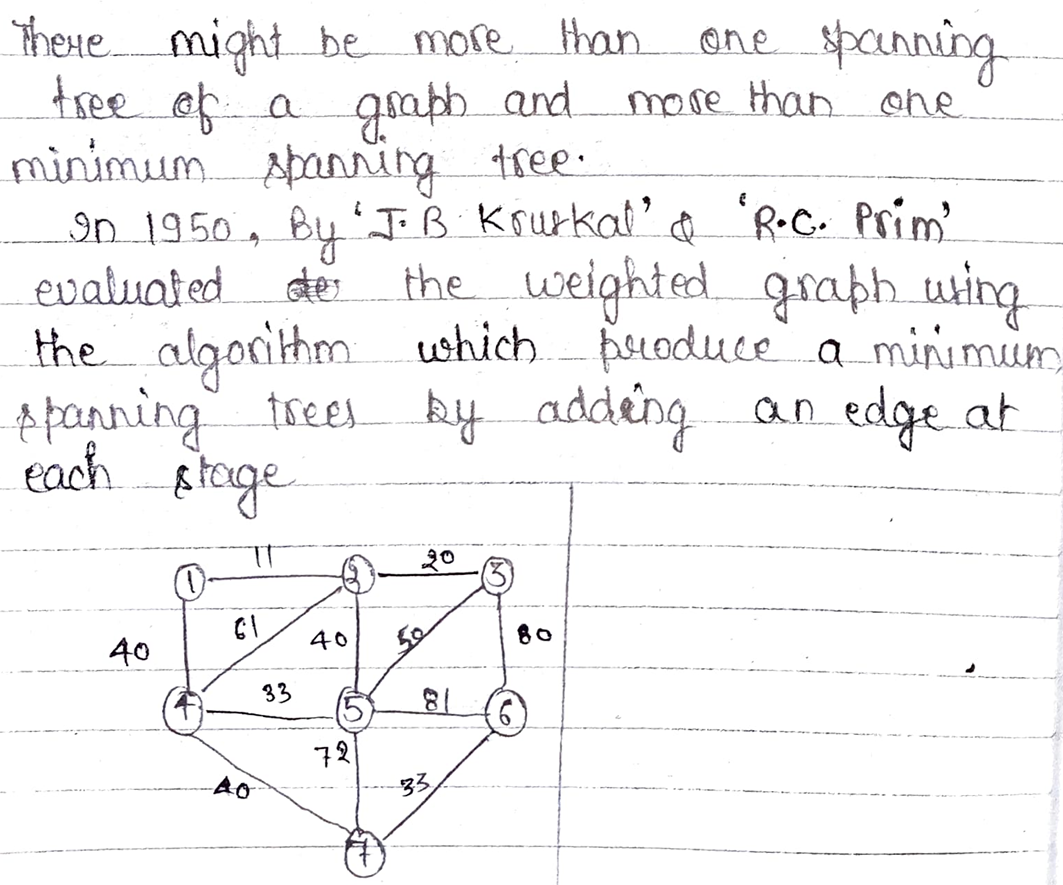 There might be more than one spanning
tree of a graph and more than one
minimum spanning tree.
In 1950, By 'J.B Kruskal' & 'R.C. Prim'
evaluated the weighted graph using
the algorithm which produce a minimum
spanning trees by adding an edge at
each stage
11 20
1 2 3
40 61 40 50 80
4 33 5 81 6
72
40 33
7